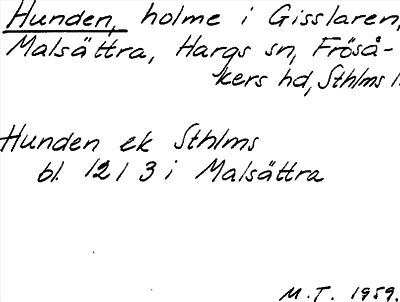 Hunden, holme i Gisslaren,
Malsättra, Hargs sn, Fröså-
kers hd, Sthlms l.
Hunden ek Sthlms
bl. 121 3 i Malsättra
M.T. 1959.